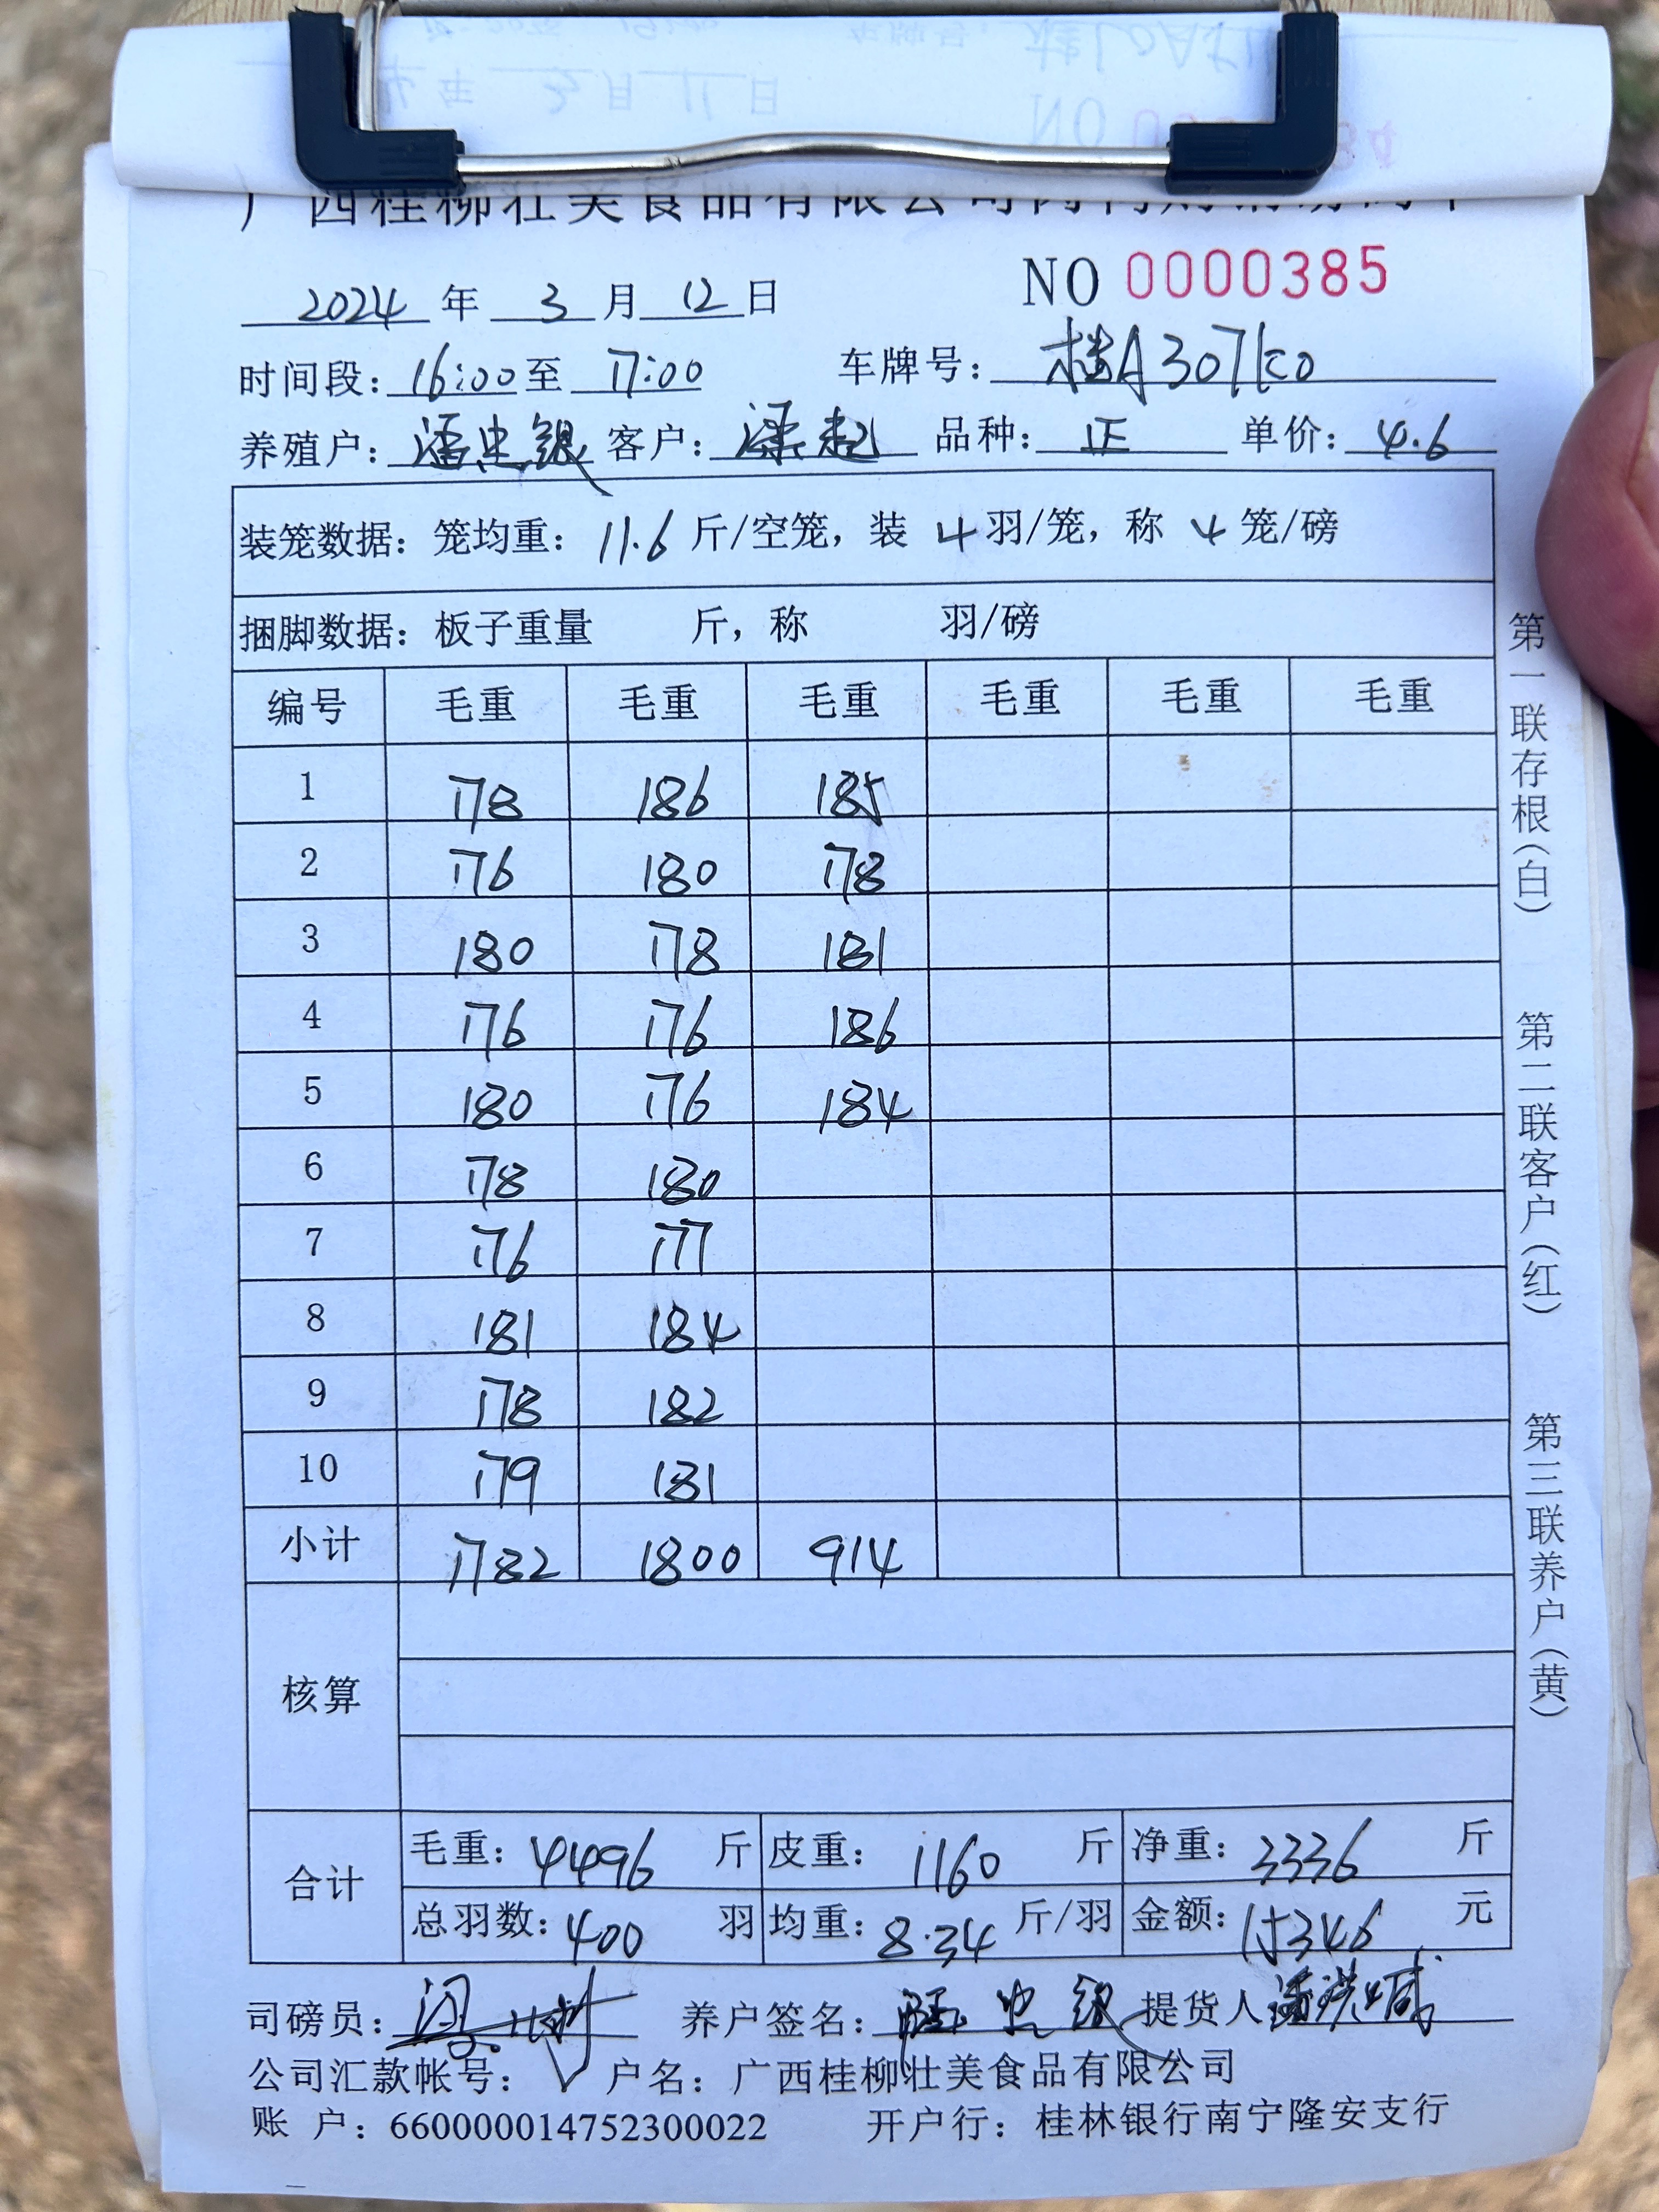 广西桂柳壮美食品有限公司
2024 年 3 月 12 日
NO 0000385
时间段: 16:00 至 17:00 车牌号: 桂A307K0
养殖户: 潘忠银 客户: 梁起 品种: 正 单价: 4.6
装笼数据: 笼均重: 11.6 斤/空笼, 装 4 羽/笼, 称 4 笼/磅
捆脚数据: 板子重量 斤, 称 羽/磅
编号 毛重 毛重 毛重 毛重 毛重 毛重
1 178 186 185
2 176 180 178
3 180 178 181
4 176 176 186
5 180 176 184
6 178 180
7 176 177
8 181 184
9 178 182
10 179 181
小计 1782 1800 914
核算
合计 毛重: 4496 斤 皮重: 1160 斤 净重: 3336 斤
总羽数: 400 羽 均重: 8.34 斤/羽 金额: 15346 元
司磅员: 养户签名: 潘忠银 提货人
公司汇款帐号: 户名: 广西桂柳壮美食品有限公司
账 户: 660000014752300022 开户行: 桂林银行南宁隆安支行
第一联存根(白)
第二联客户(红)
第三联养户(黄)